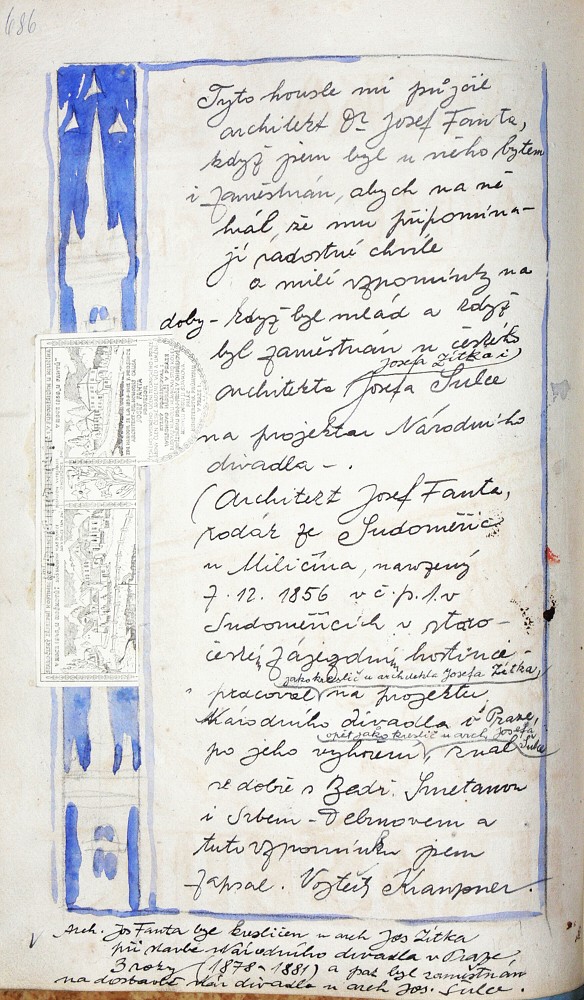 686
Tyto housle mi půjčil
architekt Dr Josef Fanta,
když jsem byl u něho bytem
i zaměstnán, abych na ně
hrál, že mu připomína-
jí radostné chvíle
a milé vzpomínky na
doby - když byl mlád a když
byl zaměstnán u
Josefa Zítka i
architekta Josefa Šulce
na projektu Národního
divadla - .
(Architekt Josef Fanta,
rodák ze Sudoměřic
u Miličína, narozený
7. 12. 1856 v č. p. 1. v
Sudoměřicích v staro-
české zájezdní hostinci -
jako kreslič u architekta Josefa Zítka,
pracoval na projektu
Národního divadla v Praze,
opět jako kreslič u arch. Josefa
Šulce
po jeho vyhoření, znal
se dobře s Bedř. Smetanou
i Srbem - Debrnovem a
tuto vzpomínku jsem
zapsal. Vojtěch Krampner.
Arch. Jos Fanta byl kresličem u arch Jos Zítka
při stavbě Národního divadla v Praze,
3 roky (1878 - 1881) a pak byl zaměstnán
na dostavbě Nár divadla u arch Jos. Šulce.